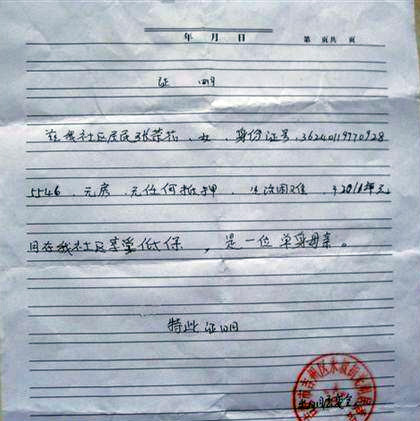 年 月 日 第 页共 页
证 明
兹我社区居民张荣花，女，身份证号，36240119770928
5546，无房，无任何抵押，生活困难，于2010年元
月在我社区享受低保，是一位单身母亲。
特此证明